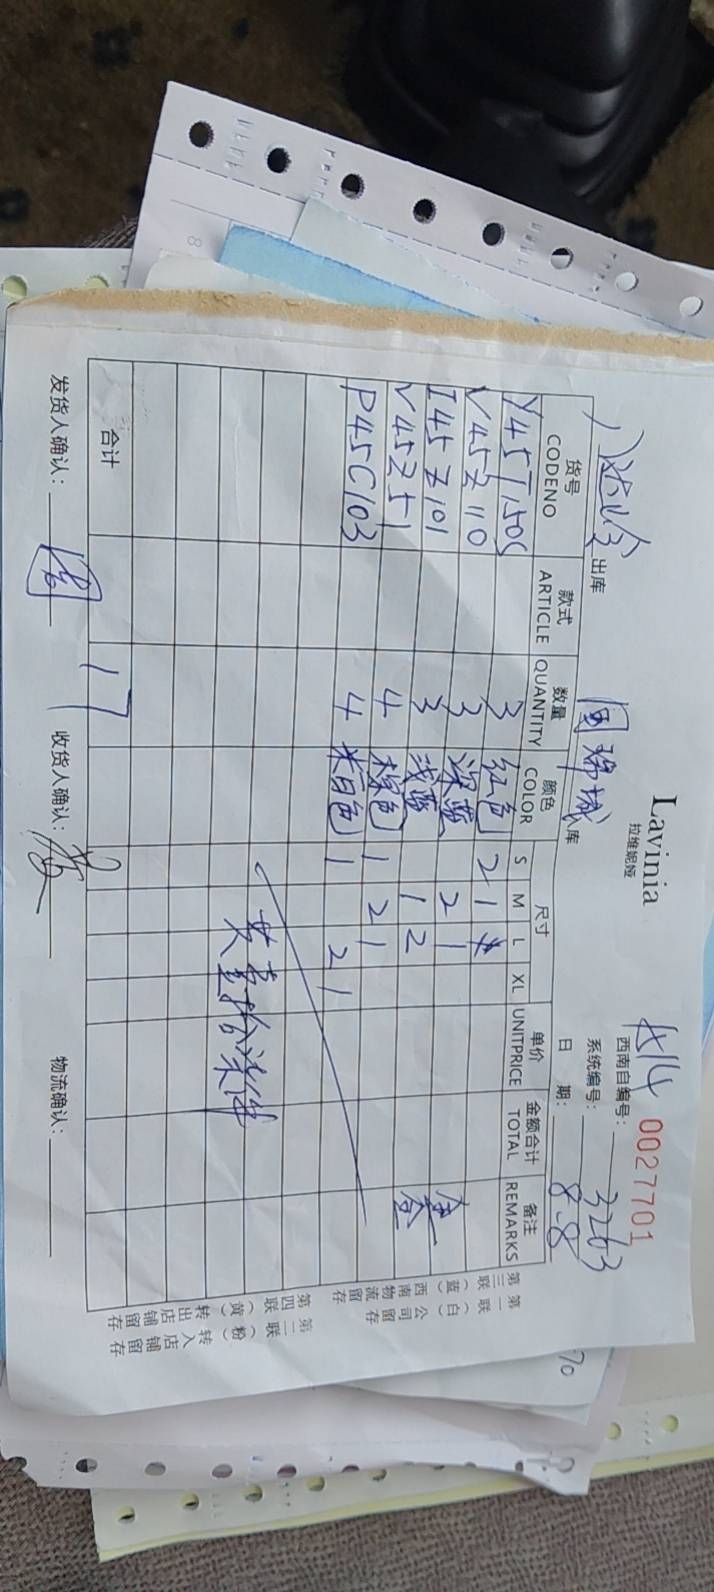 Lavinia
拉维妮娅
0027701
西南自编号:
系统编号: 3263
日 期: 8-8
出库 国瑞城 入库
货号 款式 数量 颜色 尺寸 单价 金额合计 备注
CODENO ARTICLE QUANTITY COLOR S M L XL UNITPRICE TOTAL REMARKS
3 红色 2 1
V45Z110 3 深蓝 2 1
I45Z101 3 浅蓝 1 2
V45Z51 4 棕色 1 2 1
P45C103 4 米白色 1 2 1
合计 17
发货人确认: 收货人确认: 物流确认:
第一联(白)公司留存
第三联(蓝)西南物流留存
第二联(粉)转入店铺留存
第四联(黄)转出店铺留存